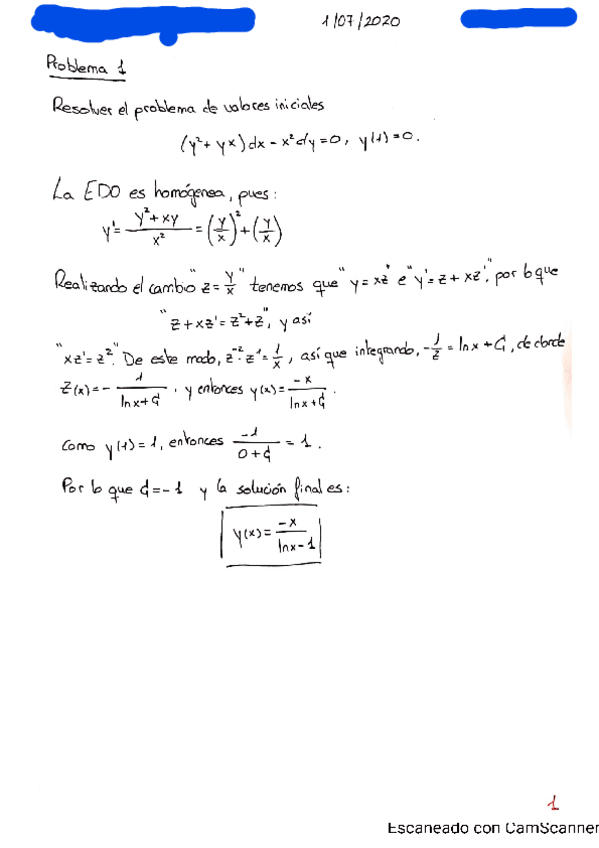 1/07/2020
Problema 1
Resolver el problema de valores iniciales
(y²+ yx)dx - x²dy = 0, y(1)=0.
La EDO es homógenea, pues:
y' = (y²+xy)/x² = (y/x)² + (y/x)
Realizando el cambio "z = y/x" tenemos que "y = xz" e "y' = z + xz'", por lo que
"z + xz' = z² + z", y así
"xz' = z²". De este modo, z⁻²·z' = 1/x, así que integrando, -1/z = ln x + C, de donde
z(x) = - 1/(ln x + C), y entonces y(x) = -x/(ln x + C).
Como y(1) = 1, entonces -1/(0 + C) = 1.
Por lo que C = -1 y la solución final es:
y(x) = -x/(ln x - 1)
1
Escaneado con CamScanner